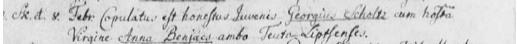 d. 8. Febr. Copulatus est honestus Juvenis Georgius Scholtz cum hosta
Virgine Anna Benjács ambo Teuto Liptsenses.